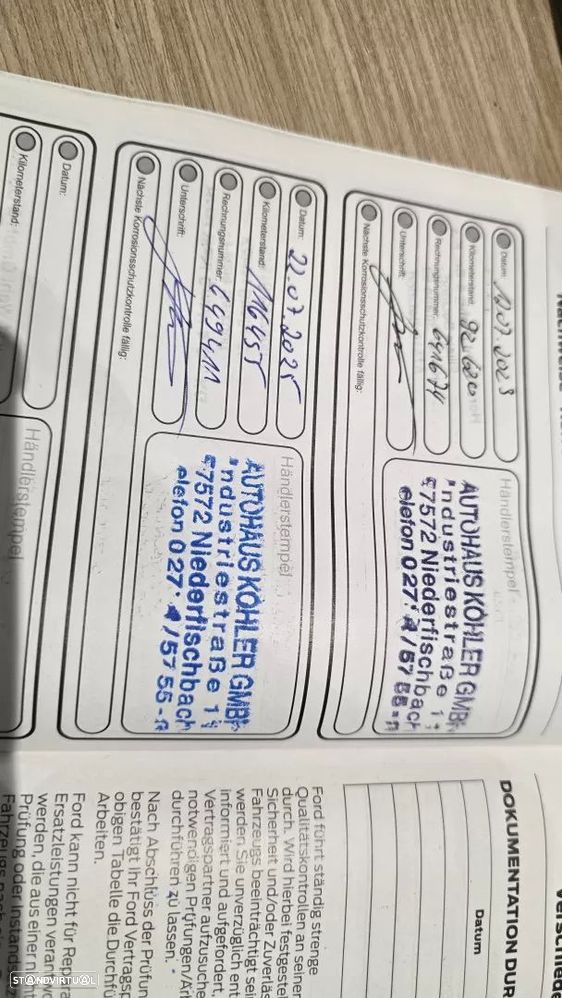 Datum: 12.07.2023
Kilometerstand: 92.620
Rechnungsnummer: 641674
Unterschrift:
Nächste Korrosionsschutzkontrolle fällig:
Händlerstempel
AUTOHAUS KÖHLER GMB
Industriestraße 1
57572 Niederfischbach
elefon 027
/57 55 -
Datum: 22.07.2025
Kilometerstand: 116455
Rechnungsnummer: 649411
Unterschrift:
Nächste Korrosionsschutzkontrolle fällig:
Händlerstempel
AUTOHAUS KÖHLER GMB
Industriestraße 1
57572 Niederfischbach
elefon 027
/57 55 -
Datum:
Kilometerstand:
Händlerstempel
DOKUMENTATION DUR
Datum
Ford führt ständig strenge
Qualitätskontrollen an seinen
durch. Wird hierbei festgeste
Sicherheit und/oder Zuverläs
Fahrzeugs beeinträchtigt sei
werden Sie unverzüglich ent
informiert und aufgefordert,
Vertragspartner aufzusuche
notwendigen Prüfungen/Ar
durchführen zu lassen.
Nach Abschluss der Prüfun
bestätigt Ihr Ford Vertragsp
obigen Tabelle die Durchfü
Arbeiten.
Ford kann nicht für Repara
Ersatzleistungen verantwo
werden, die aus einer n
Prüfung oder Instands
STANDVIRTUAL